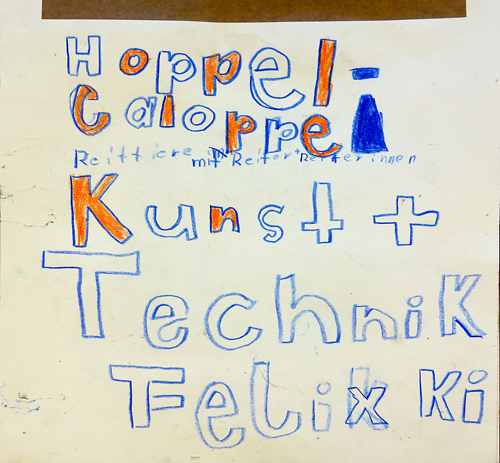 Hoppel-
Galoppel
Reittiere mit Reiter + Reiterinnen
Kunst +
Technik
Felix Ki